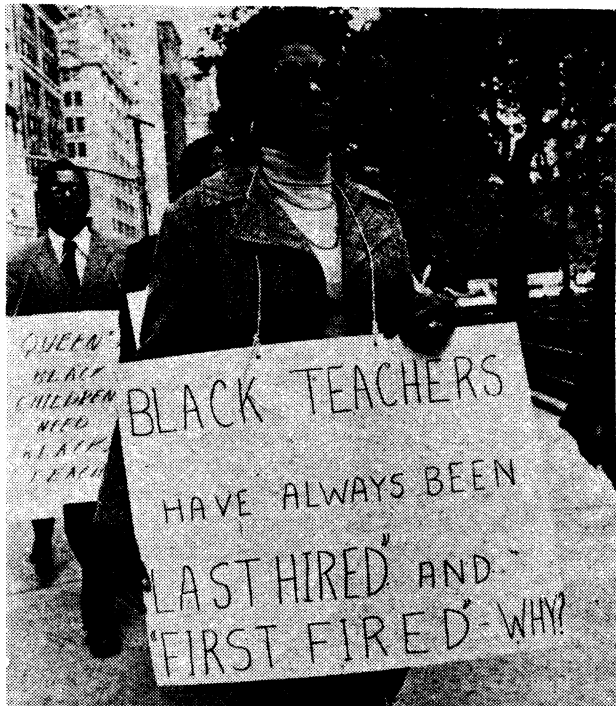 QUEEN'
BLACK
CHILDREN
NEED
BLACK
TEACH
BLACK TEACHERS
HAVE ALWAYS BEEN
"LAST HIRED" AND
"FIRST FIRED"-WHY?